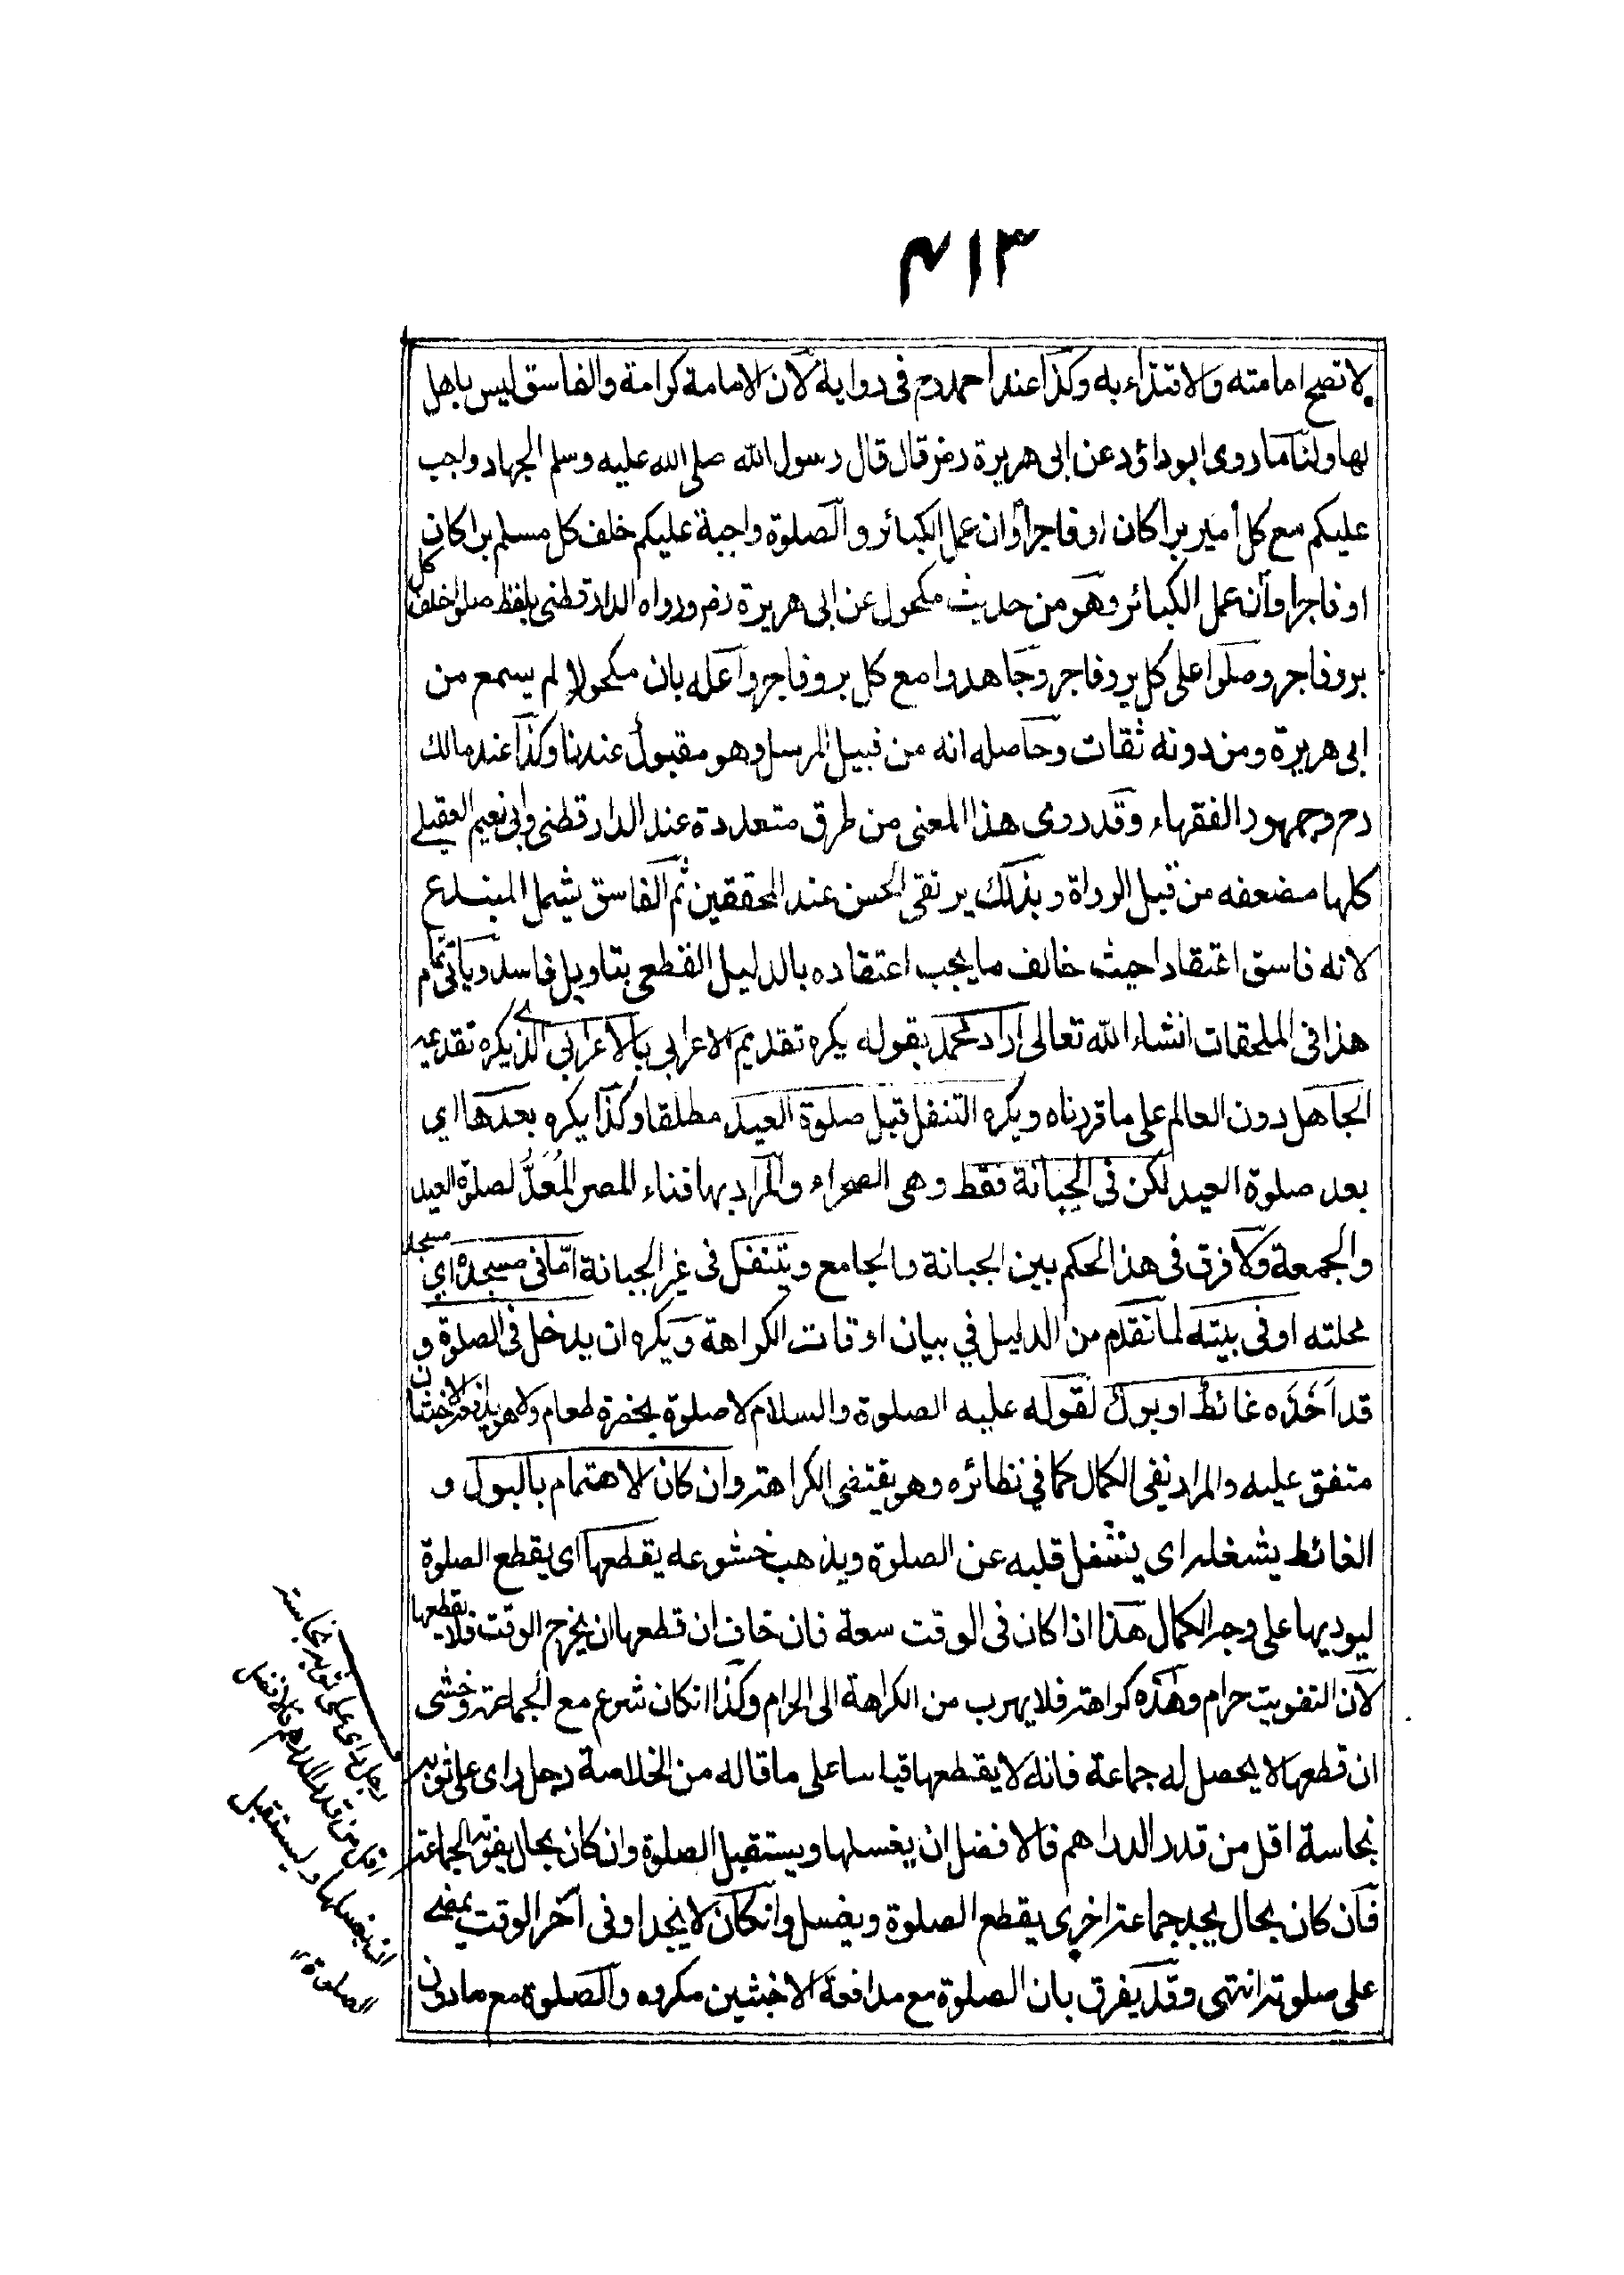 ٣١٣
لا تصح امامته والاقتداء به وكذا عند احمد رح فى رواية لان الامامة كرامة والفاسق ليس باهل
لها ولنا ما روى ابوداؤد عن ابى هريرة رض قال قال رسول الله صلى الله عليه وسلم الجهاد واجب
عليكم مع كل أمير برا كان او فاجرا وان عمل الكبائر والصلوة واجبة عليكم خلف كل مسلم برا كان
او فاجرا وان عمل الكبائر وهو من حديث مكحول عن ابى هريرة رض ورواه الدارقطنى بلفظ صلوا خلف كل
بر وفاجر وصلوا على كل بر وفاجر وجاهدوا مع كل بر وفاجر واعله بان مكحولا لم يسمع من
ابى هريرة ومن دونه ثقات وحاصله انه من قبيل المرسل وهو مقبول عندنا وكذا عند مالك
رح وجمهور الفقهاء وقد روى هذا المعنى من طرق متعددة عند الدارقطنى وابى نعيم العقيلے
كلها مضعفه من قبل الرواة وبذلك يرتقى الحسن عند المحققين ثم الفاسق يشمل المبتدع
لانه فاسق اعتقادا حيث خالف ما يجب اعتقاده بالدليل القطعى بتاويل فاسد وياتى تمام
هذا فى الملحقات انشاء الله تعالى اراد محمد بقوله يكره تقديم الاعرابي بالاعرابي الذے يكره تقديمه
الجاهل دون العالم على ما قررناه ويكره التنفل قبل صلوة العيد مطلقا وكذا يكره بعدها اي
بعد صلوة العيد لكن فى الجبانة فقط وهى الصحراء والمراد بها فناء المصر المُعَدُّ لصلوة العيد
والجمعة ولا فرق فى هذا الحكم بين الجبانة والجامع ويتنفل فى غير الجبانة امّا فى مسجده اي مسجد
محلته او فى بيته لما تقدم من الدليل في بيان اوقات الكراهة ويكره ان يدخل فى الصلوة و
قد اَخَذَه غائطٌ او بولٌ لقوله عليه الصلوة والسلام لا صلوة بحضرة طعام ولا هو يدافعه الاخبثان
متفق عليه والمراد نفى الكمال كما في نظائره وهو يقتضى الكراهة وان كان الاهتمام بالبول و
الغائط يشغله اى يشغل قلبه عن الصلوة ويذهب خشوعه يقطعها اى يقطع الصلوة
ليوديها على وجه الكمال هذا اذا كان فى الوقت سعة فان خاف ان قطعها ان يخرج الوقت فلا يقطعها
لان التفويت حرام وهذه كراهة فلا يهرب من الكراهة الى الحرام وكذا انكان شرع مع الجماعة وخشى
ان قطعها لا يحصل له جماعة فانه لا يقطعها قياسا على ما قاله من الخلاصة رجل راى على ثوبه
نجاسة اقل من قدر الدراهم فالافضل ان يغسلها ويستقبل الصلوة وان كان بحال يفوته الجماعة
فان كان بحال يجد جماعة اخرى يقطع الصلوة ويغسل وانكان لا يجد او فى آخر الوقت يمضے
على صلوته انتهى وقد يفرق بان الصلوة مع مدافعة الاخبثين مكروه والصلوة مع ما دون
رجل راى على ثوبه نجاسة
اقل من قدر الدرهم فالافضل
ان يغسلها ويستقبل
الصلوة ۱۲